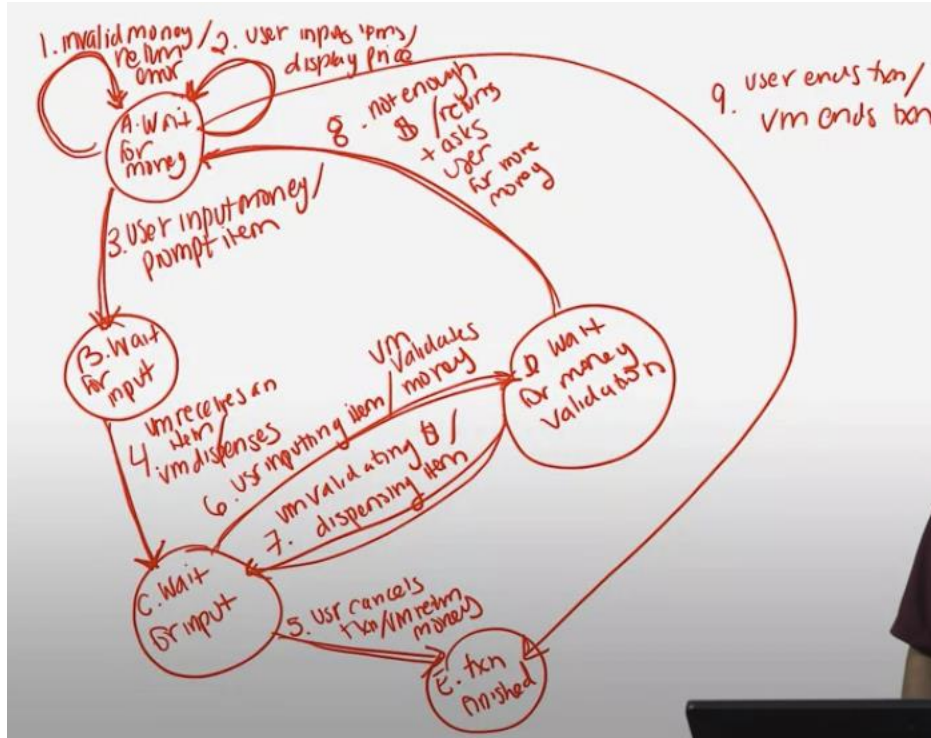 1. invalid money/
return
error
2. user inputs items/
display price
A. Wait
for
money
8. not enough
$ /returns
+ asks
user
for more
money
9. user ends txn/
vm ends txn
3. User input money/
prompt item
B. Wait
for
input
4. vm receives an
item/
vm dispenses
6. usr inputting item/
vm
validates
money
D Wait
for money
validation
7. vm validating $/
dispensing item
C. Wait
for input
5. usr cancels
txn/vm return
money
E. txn
finished